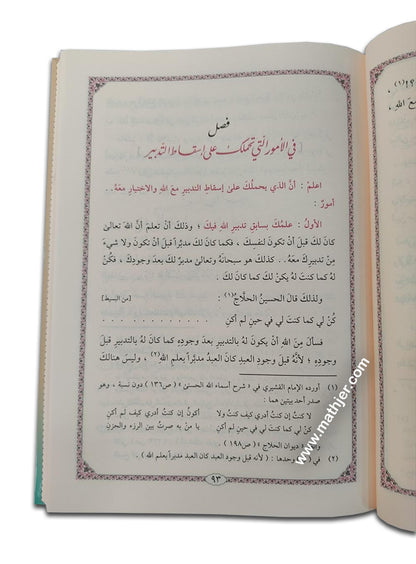 فصل
[ في الأمور التي تحملك على إسقاط التدبير ]
اعلم : أنَّ الذي يحملُكَ على إسقاطِ التدبيرِ معَ اللهِ والاختيارِ معَهُ . .
أمورٌ :
الأولُ : علمُكَ بسابقِ تدبيرِ اللهِ فيكَ ؛ وذلكَ أنْ تعلمَ أنَّ اللهَ تعالى
كانَ لكَ قبلَ أنْ تكونَ لنفسِكَ ، فكما كانَ لكَ مدبِّراً قبلَ أنْ تكونَ ولا شيءَ
مِنْ تدبيرِكَ معَهُ . . كذلكَ هو سبحانَهُ وتعالى مدبِّرٌ لكَ بعدَ وجودِكَ ، فكُنْ
لهُ كما كنتَ لهُ يكنْ لكَ كما كانَ لكَ .
ولذلكَ قالَ الحسينُ الحلَّاجُ(١) : [من البسيط]
كُنْ لي كما كنتَ لي في حينِ لم أكنِ . . . . . . . . .
فسألَ مِنَ اللهِ أنْ يكونَ لهُ بالتدبيرِ بعدَ وجودِهِ كما كانَ لهُ بالتدبيرِ قبلَ
وجودِهِ ؛ لأنَّهُ قبلَ وجودِ العبدِ كانَ العبدُ مدبَّراً بعلمِ اللهِ(٢) ، وليسَ هنالكَ
(١) أورده الإمام القشيري في « شرح أسماء الله الحسنى » ( ص١٣٦ ) دون نسبة ، وهو
صدر أحد بيتين هما :
لا كنت إن كنت أدري كيف كنت ولا أكون إن كنت أدري كيف لم أكن
كن لي كما كنت لي في حين لم أكن يا من به صرت بين الرزء والحزن
« ديوان الحلاج » ( ص١٩٨ ) .
(٢) في وحدها : ( لأنه قبل وجود العبد كان العبد مدبراً بعلم الله ) .
٩٣
www.mathjer.com
(١)
مع الله